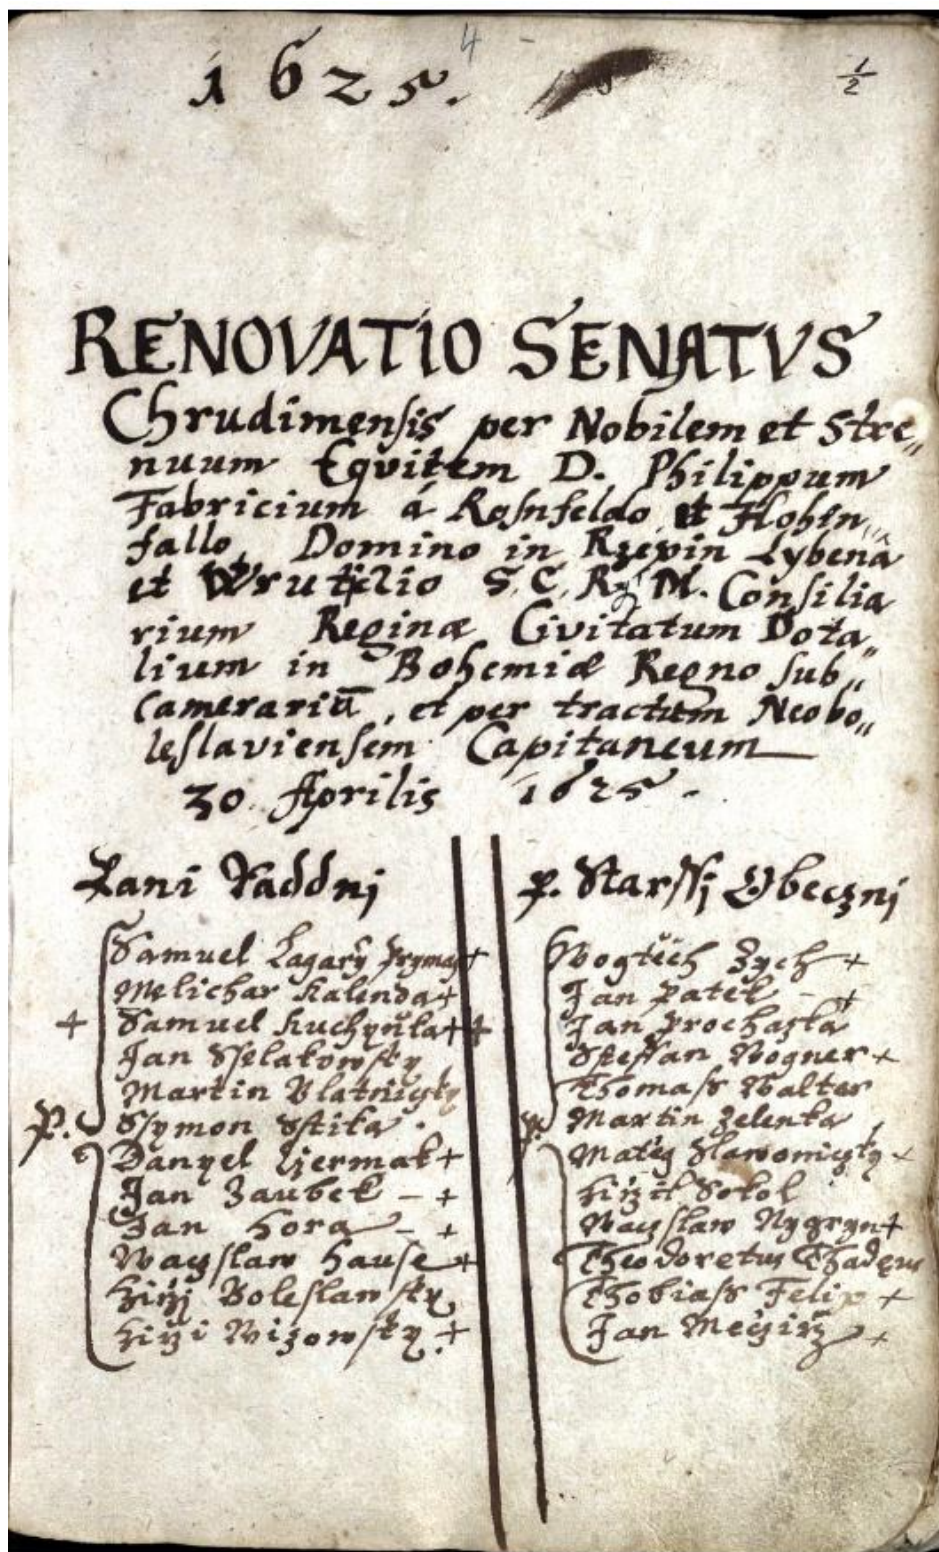 4
1625.
1/2
RENOVATIO SENATVS
Chrudimensis per Nobilem et Stre„
nuum Eqvitem D. Philippum
Fabricium á Rosnfeldo et Hohen„
fallo, Domino in Rzepin Lybena
et Wrutilio S. C. R. M. Consilia
rium Reginæ Civitatum Dota„
lium in Bohemiæ Regno sub„
Camerariū, et per tractum Neobo„
leslaviensem Capitaneum
30. Aprilis 1625.
Pani Raddnj
Samuel Lazarÿ Prymas +
Melichar Kalenda +
+ Samuel Kuchynka ++
Jan Sselakowsky
Martin Blatnizky
P. Ssymon Sstika.
Danyel Cžermak +
Jan Zaubek – +
Jan Hora – +
Waczslaw Hause +
Girži Boleslawsky
Girži Wizowsky. +
p. Starssj Obecznj
Wogtiech Zych +
Jan Patek – +
Jan Prochazka
Steffan Wogner +
Thomass Walter
p. Martin Zelenka
Matēg Slawoniczky +
Sokol
Waczslaw Nygryn +
Theodoretus Thadęus
Thobiass Felix +
Jan +